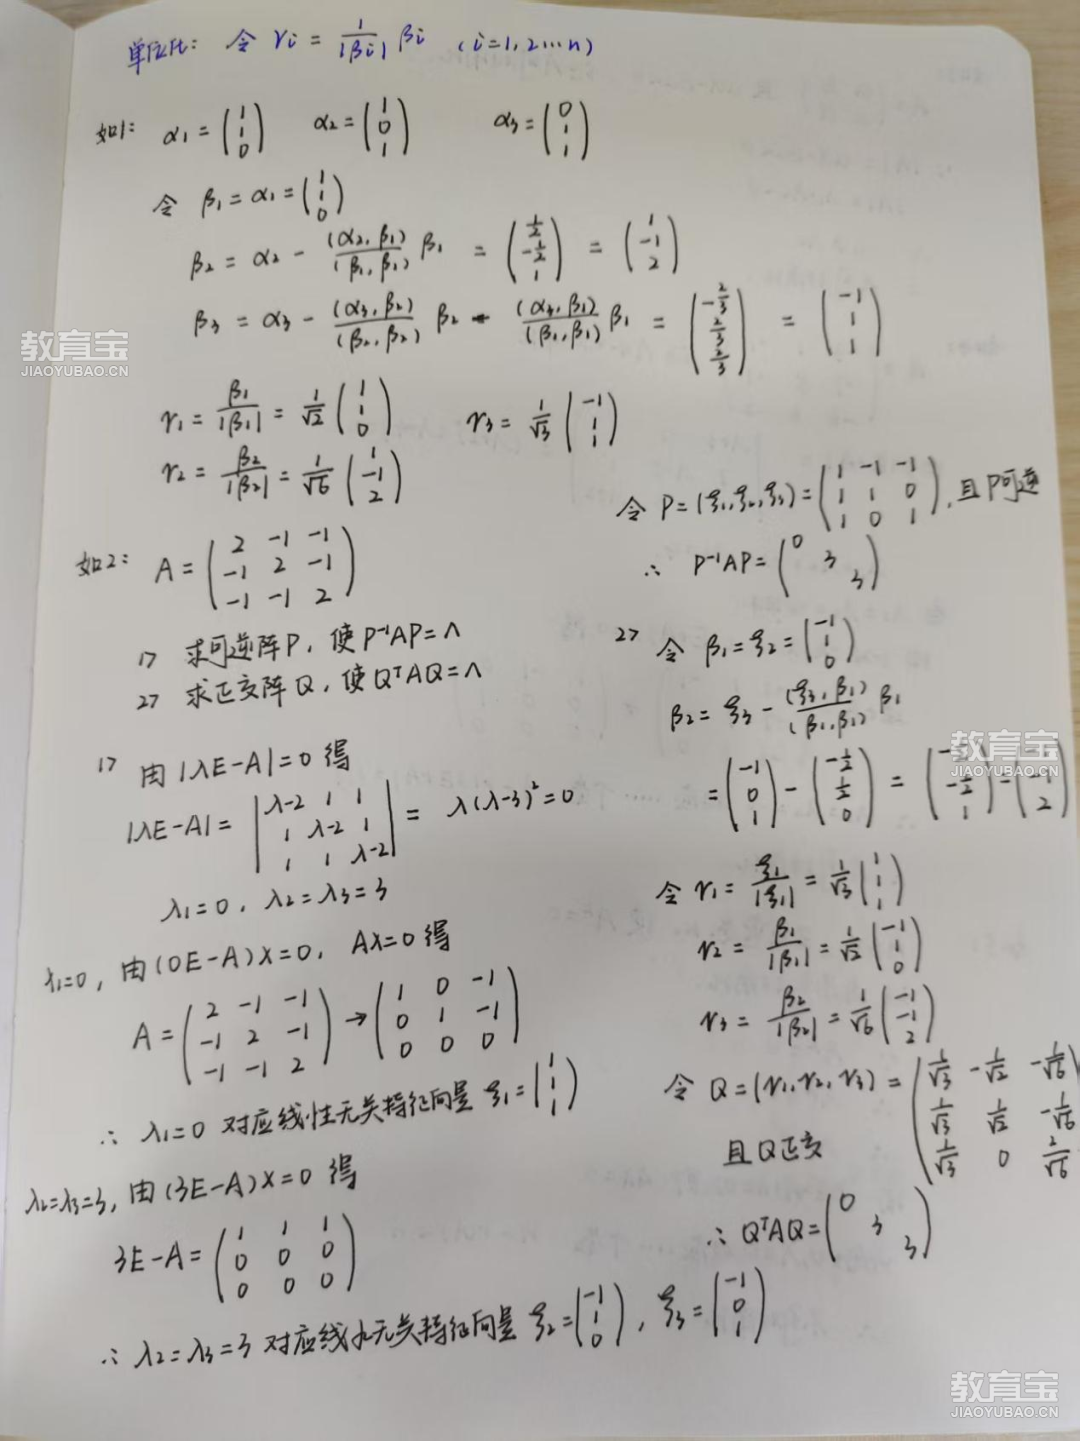 单位化: 令 γi = 1/|βi| βi (i=1,2…n)
如1: α1 = (1 1 0) α2 = (1 0 1) α3 = (0 1 1)
令 β1 = α1 = (1 1 0)
β2 = α2 - (α2, β1)/(β1, β1) β1 = (1/2 -1/2 1) = (1 -1 2)
β3 = α3 - (α3, β2)/(β2, β2) β2 - (α3, β1)/(β1, β1) β1 = (-2/3 2/3 2/3) = (-1 1 1)
γ1 = β1/|β1| = 1/√2 (1 1 0) γ3 = 1/√3 (-1 1 1)
γ2 = β2/|β2| = 1/√6 (1 -1 2)
如2: A = (2 -1 -1
-1 2 -1
-1 -1 2)
1> 求可逆阵P, 使P⁻¹AP=Λ
2> 求正交阵Q, 使QᵀAQ=Λ
1> 由|λE-A|=0 得
|λE-A| = |λ-2 1 1
1 λ-2 1
1 1 λ-2| = λ(λ-3)²=0
λ1=0, λ2=λ3=3
λ1=0, 由(0E-A)X=0, AX=0 得
A = (2 -1 -1
-1 2 -1
-1 -1 2) → (1 0 -1
0 1 -1
0 0 0)
∴ λ1=0 对应线性无关特征向量 ξ1=(1 1 1)
λ2=λ3=3, 由(3E-A)X=0 得
3E-A = (1 1 1
0 0 0
0 0 0)
∴ λ2=λ3=3 对应线性无关特征向量 ξ2=(-1 1 0), ξ3=(-1 0 1)
令 P=(ξ1,ξ2,ξ3)=(1 -1 -1
1 1 0
1 0 1), 且P可逆
∴ P⁻¹AP=(0 3 3)
2> 令 β1=ξ2=(-1 1 0)
β2=ξ3-(ξ3, β1)/(β1, β1) β1
=(-1 0 1)-(-1/2 1/2 0) = (-1/2 -1/2 1)=(-1 -1 2)
令 γ1= ξ1/|ξ1| = 1/√3 (1 1 1)
γ2= β1/|β1| = 1/√2 (-1 1 0)
γ3= β2/|β2| = 1/√6 (-1 -1 2)
令 Q=(γ1,γ2,γ3)=(1/√3 -1/√2 -1/√6
1/√3 1/√2 -1/√6
1/√3 0 2/√6)
且Q正交
∴ QᵀAQ=(0 3 3)
教育宝
JIAOYUBAO.CN
教育宝
JIAOYUBAO.CN
教育宝
JIAOYUBAO.CN